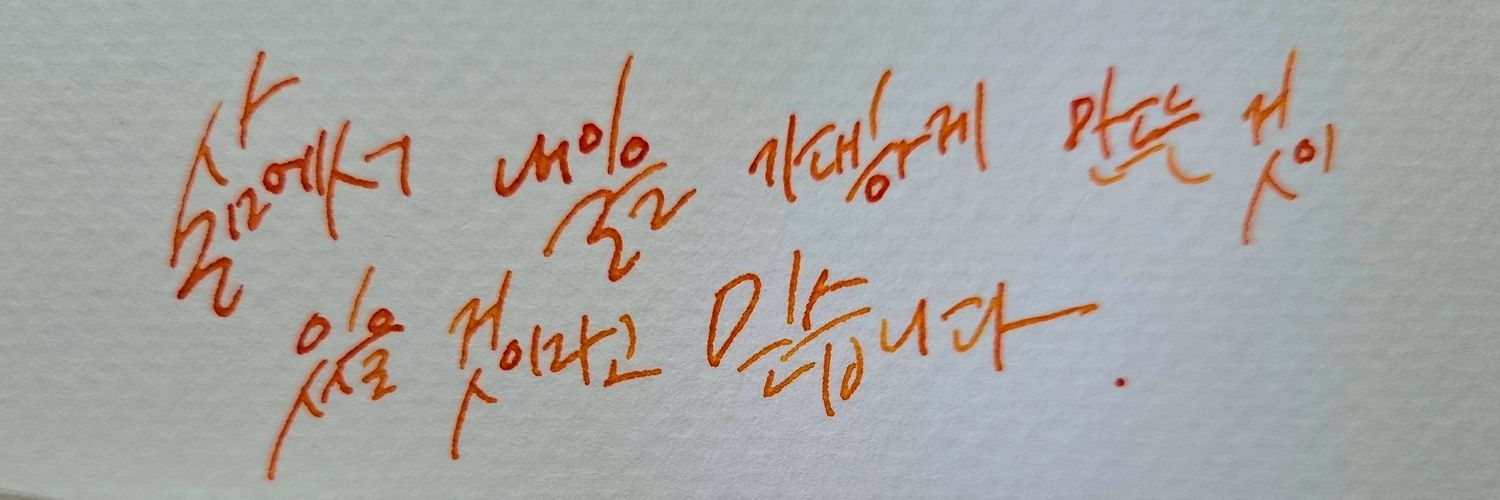 삶에서 내일을 기대하게 만드는 것이
있을 것이라고 믿습니다.